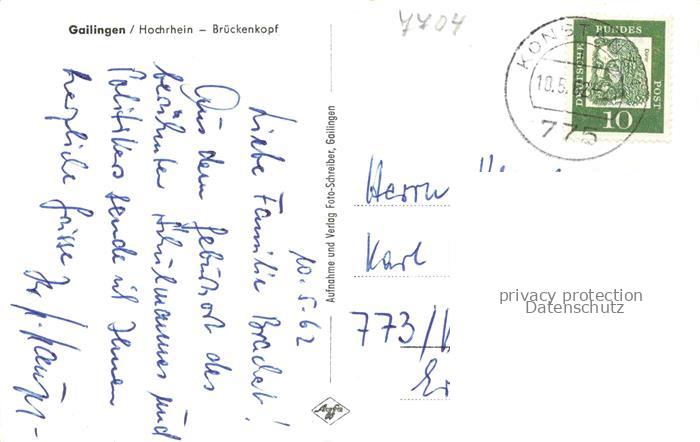 Gailingen / Hochrhein – Brückenkopf
7704
KONST
10.5.62
775
DEUTSCHE BUNDES POST
Dürer
10
10.5-62
Liebe Familie Brachat!
Aus dem Geburtsort des
berühmten Schulmannes und
Politikers sende ich Ihnen
herzliche Grüsse
Aufnahme und Verlag Foto-Schreiber, Gailingen
Agfa
Herrn
Karl
773/
privacy protection
Datenschutz